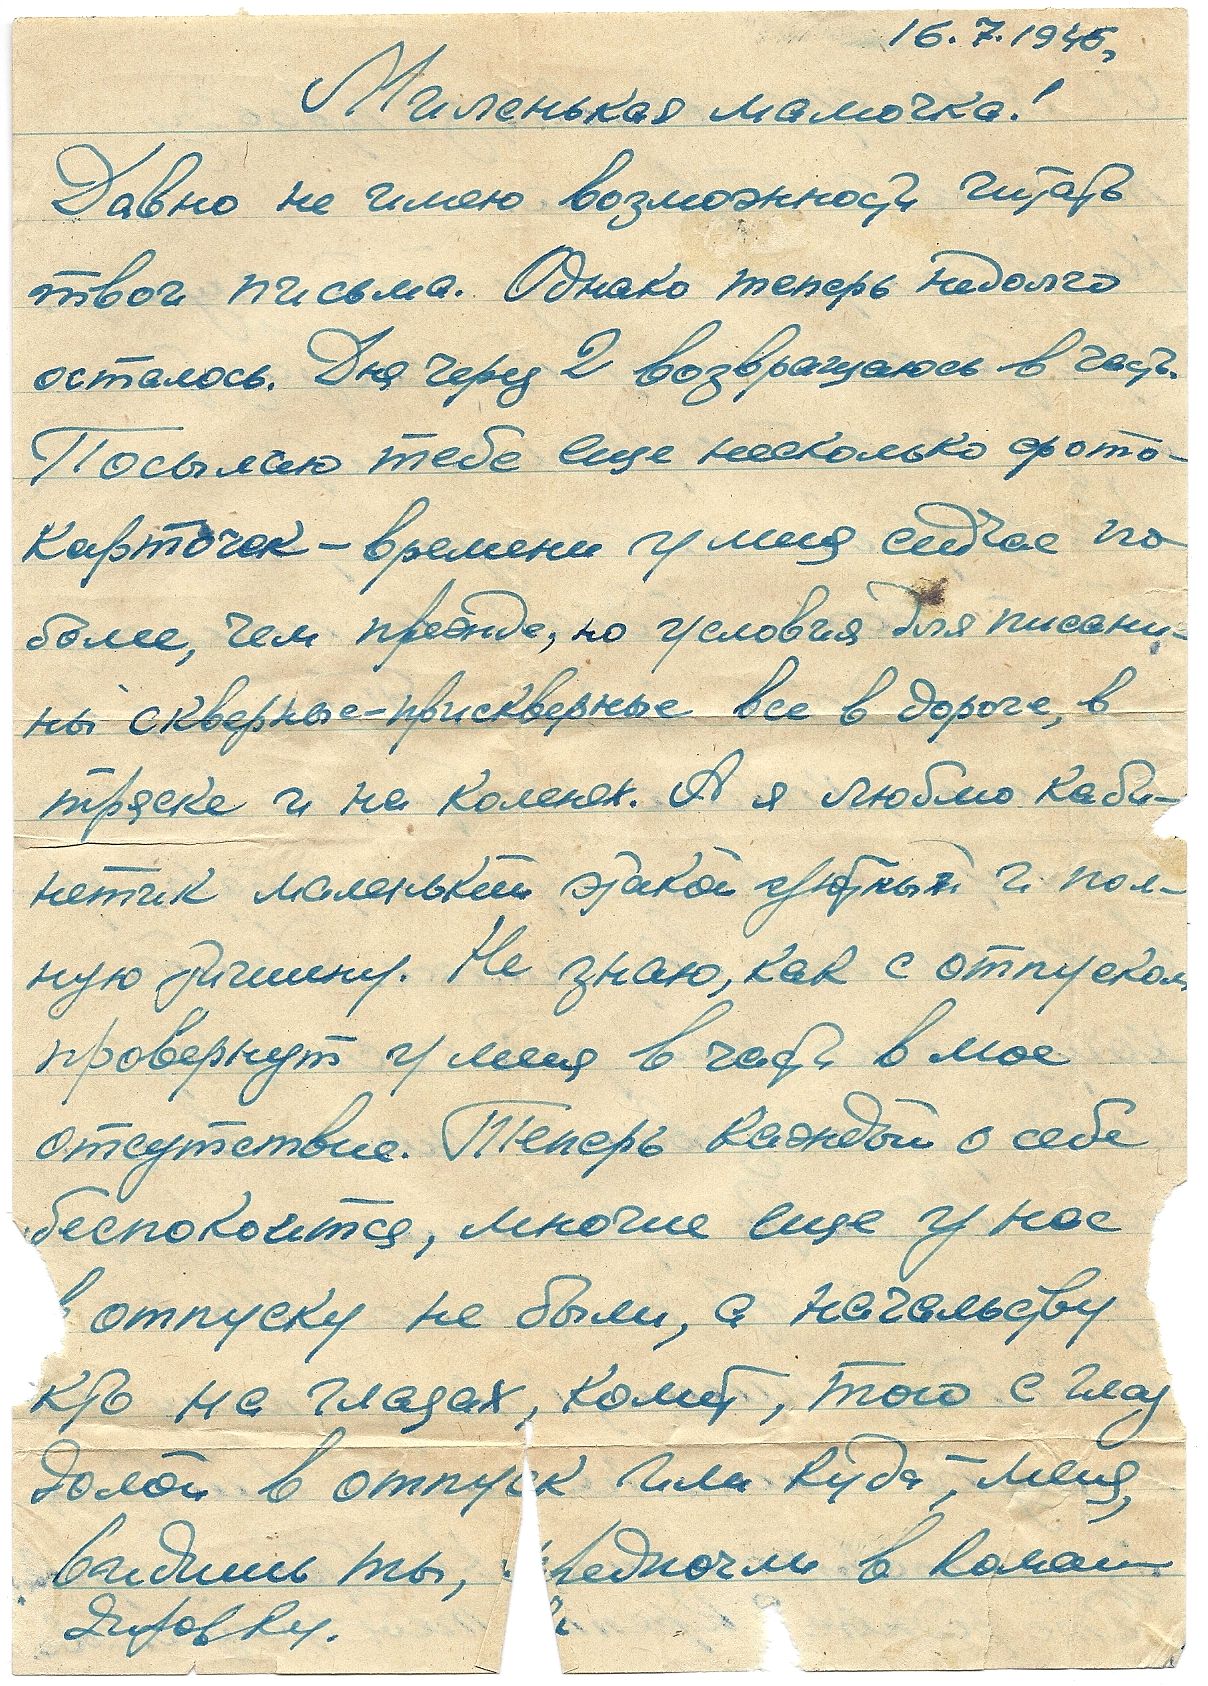 16.7.1945,
Миленькая мамочка!
Давно не имею возможности читать
твои письма. Однако теперь недолго
осталось. Дня через 2 возвращаюсь в часть.
Посылаю тебе еще несколько фото-
карточек – времени у меня сейчас по-
более, чем прежде, но условия для писани-
ны скверные-прискверные все в дороге, в
тряске и на коленях. А я люблю каби-
нетик маленький этакой уютный и пол-
ную тишину. Не знаю, как с отпуском
провернут у меня в части в мое
отсутствие. Теперь каждый о себе
беспокоится, многие еще у нас
в отпуску не были, а начальству
кто на глазах, колет, того с глаз
долой в отпуск или куда, – меня,
видишь ты, предпочли в коман-
дировку.